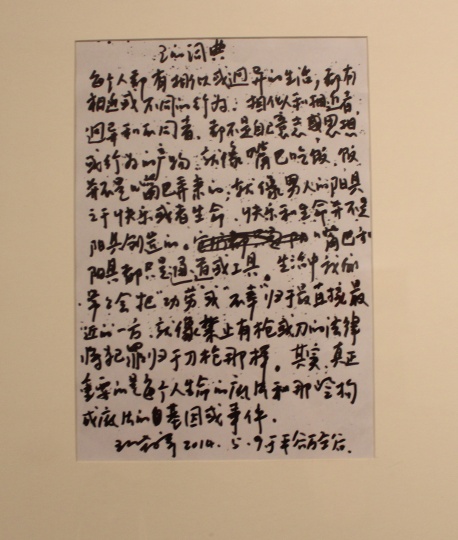 词典
每个人都有相似或迥异的生活，都有
相近或不同的行为。相似和相近者，
迥异和不同者，都不是自己意志或思想
或行为的产物。就像嘴巴吃饭，饭
并不是嘴巴弄来的；就像男人的阳具
之于快乐或者生命，快乐和生命并不是
阳具创造的。嘴巴和
阳具都只是通道或工具。生活中我们
常常会把“功劳”或“不幸”归于最直接最
近的一方，就像禁止有枪或刀的法律
将犯罪归于刀枪那样。其实，真正
重要的是每个人生命的底片和那些构
成底片的基因或事件。
2014.5.9于平谷